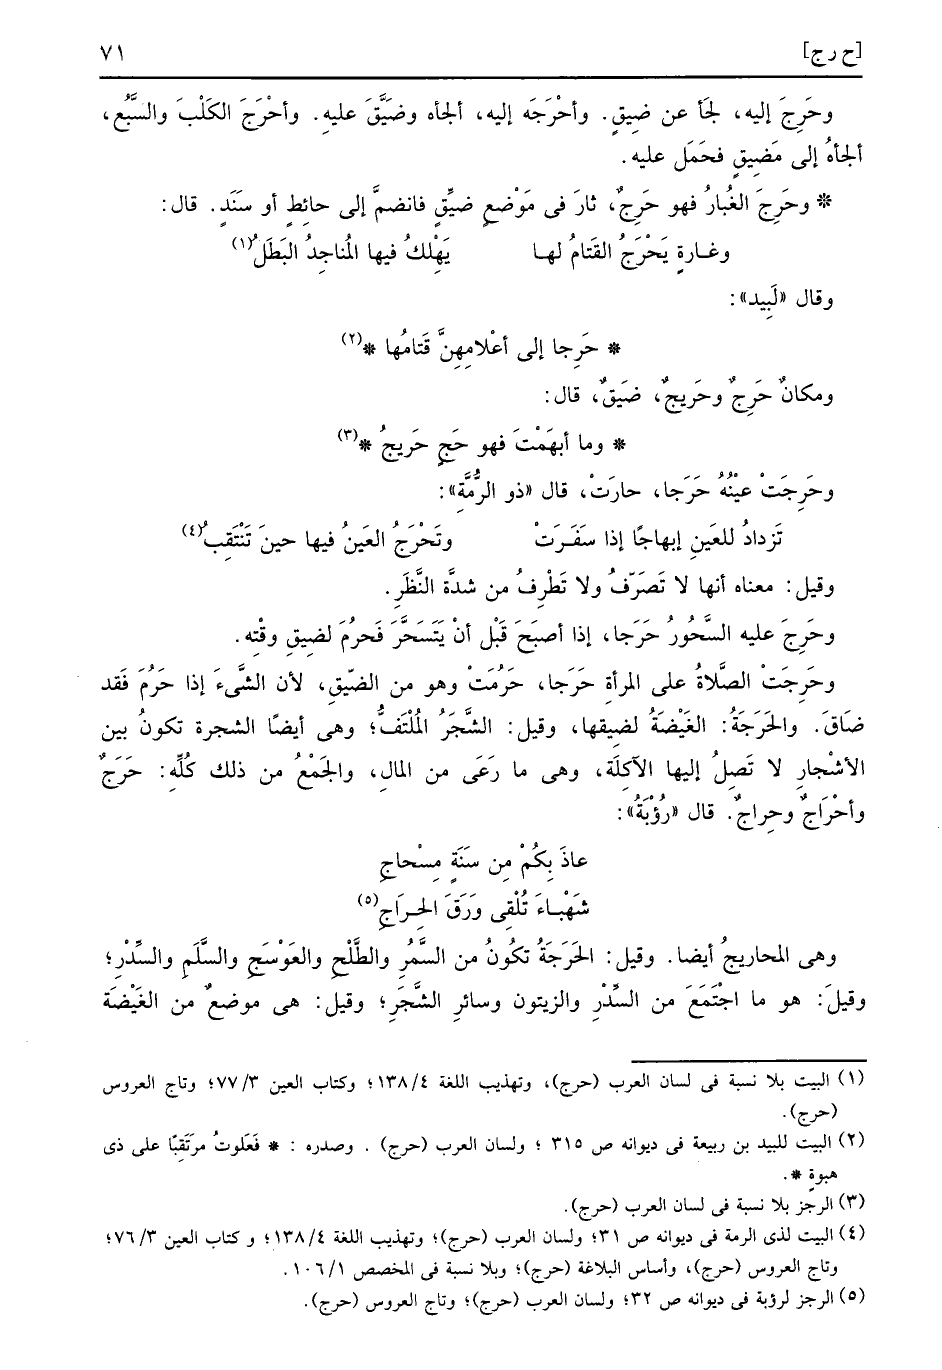 [ح ر ج] ٧١
وحَرِجَ إليه، لجَأَ عن ضِيقٍ. وأحْرَجَه إليه، ألجأه وضَيَّقَ عليه. وأحْرَجَ الكَلْبَ والسَّبُع،
ألجأهُ إلى مَضِيقٍ فحَمَل عليه.
* وحَرِجَ الغُبارُ فهو حَرِجٌ، ثارَ فى مَوْضعٍ ضيِّقٍ فانضمَّ إلى حائطٍ أو سنَدٍ. قال:
وغـارةٍ يَحْرَجُ القَتامُ لهـا يَهْلكُ فيها المُناجدُ البَطَلُ(١)
وقال «لَبِيد»:
* حَرِجا إلى أعْلامِهِنَّ قَتامُها *(٢)
ومكانٌ حَرِجٌ وحَرِيجٌ، ضَيقٌ، قال:
* وما أبهَمْتَ فهو حَجٍ حَريجُ *(٣)
وحَرِجَتْ عينُهُ حَرَجا، حارَتْ، قال «ذو الرُّمَّة»:
تَزدادُ للعَينِ إبهاجًا إذا سفَـرَتْ وتَحْرَجُ العَينُ فيها حينَ تَنْتَقبُ(٤)
وقيل: معناه أنها لا تَصَرّفُ ولا تَطْرِفُ من شدَّة النَّظَرِ.
وحَرِجَ عليه السَّحُورُ حَرَجا، إذا أصبَحَ قَبْل أنْ يَتَسَحَّرَ فَحرُمَ لضيقِ وقْته.
وحَرِجَتْ الصَّلاةُ على المرأةِ حَرَجا، حَرُمَتْ وهو من الضّيقِ، لأن الشَّىءَ إذا حَرُمَ فَقد
ضَاقَ. والحَرَجَةُ: الغَيْضَةُ لضيقها، وقيل: الشَّجَرُ المُلْتَفُّ؛ وهى أيضًا الشجرة تكونُ بين
الأشْجارِ لا تَصِلُ إليها الآكِلَة، وهى ما رَعَى من المالِ، والجَمْعُ من ذلك كُلِّه: حَرَجٌ
وأحْرَاجٌ وحِراجٌ. قال «رُؤْبَةُ»:
عاذَ بِكُمْ مِن سنَةٍ مِسْحاجِ
شهْبـاءَ تُلْقِى وَرَقَ الحِـرَاجِ(٥)
وهى المحاريجُ أيضا. وقيل: الحَرَجَةُ تكُونُ من السَّمُرِ والطَّلْحِ والعَوْسَجِ والسَّلَمِ والسِّدْرِ؛
وقيلَ: هو ما اجْتَمَعَ من السِّدْرِ والزيتون وسائرِ الشَّجَرِ؛ وقيل: هى موضعٌ من الغَيْضَة
(١) البيت بلا نسبة فى لسان العرب (حرج)، وتهذيب اللغة ١٣٨/٤؛ وكتاب العين ٧٧/٣؛ وتاج العروس
(حرج).
(٢) البيت للبيد بن ربيعة فى ديوانه ص ٣١٥ ؛ ولسان العرب (حرج) . وصدره : * فَعَلوتُ مرَتَقبًا على ذى
هبوةٍ *.
(٣) الرجز بلا نسبة فى لسان العرب (حرج).
(٤) البيت لذى الرمة فى ديوانه ص ٣١؛ ولسان العرب (حرج)؛ وتهذيب اللغة ١٣٨/٤؛ و كتاب العين ٧٦/٣؛
وتاج العروس (حرج)، وأساس البلاغة (حرج)؛ وبلا نسبة فى المخصص ١٠٦/١.
(٥) الرجز لرؤبة فى ديوانه ص ٣٢؛ ولسان العرب (حرج)؛ وتاج العروس (حرج).